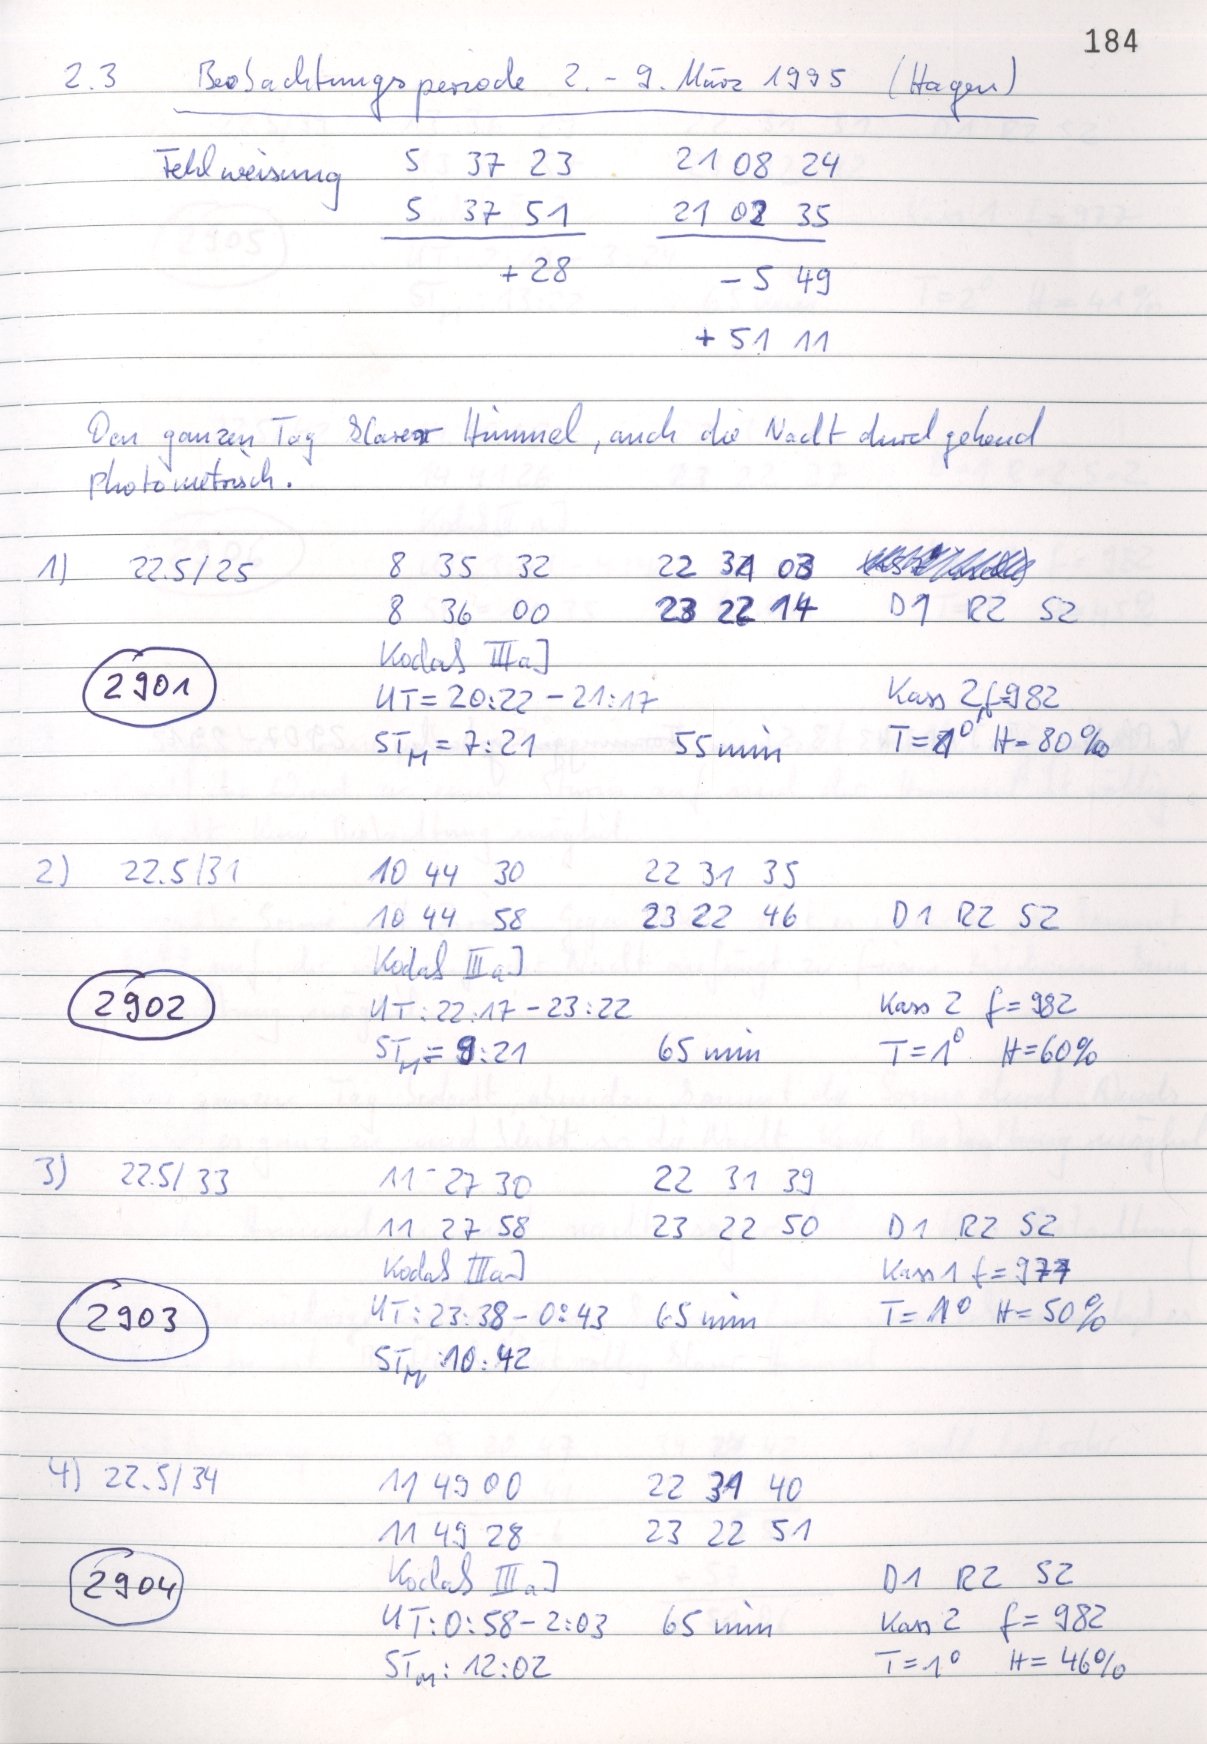 184
2.3 Beobachtungsperiode 2.-9. März 1995 (Hagen)
Fehlweisung 5 37 23 21 08 24
5 37 51 21 02 35
+28 -5 49
+51 11
Den ganzen Tag klarer Himmel, auch die Nacht durchgehend
photometrisch.
1) 22.5/25 8 35 32 22 31 03
8 36 00 23 22 14 D1 R2 S2
Kodak IIIaJ
2901 UT=20:22-21:17 Kass 2 f=982
STM=7:21 55min T=1° H=80%
2) 22.5/31 10 44 30 22 31 35
10 44 58 23 22 46 D1 R2 S2
Kodak IIIaJ
2902 UT:22:17-23:22 Kass 2 f=982
STM=9:21 65min T=1° H=60%
3) 22.5/33 11 27 30 22 31 39
11 27 58 23 22 50 D1 R2 S2
Kodak IIIaJ Kass 1 f=977
2903 UT:23:38-0:43 65min T=1° H=50%
STM:10:42
4) 22.5/34 11 49 00 22 31 40
11 49 28 23 22 51
2904 Kodak IIIaJ D1 R2 S2
UT:0:58-2:03 65min Kass 2 f=982
STM:12:02 T=1° H=46%